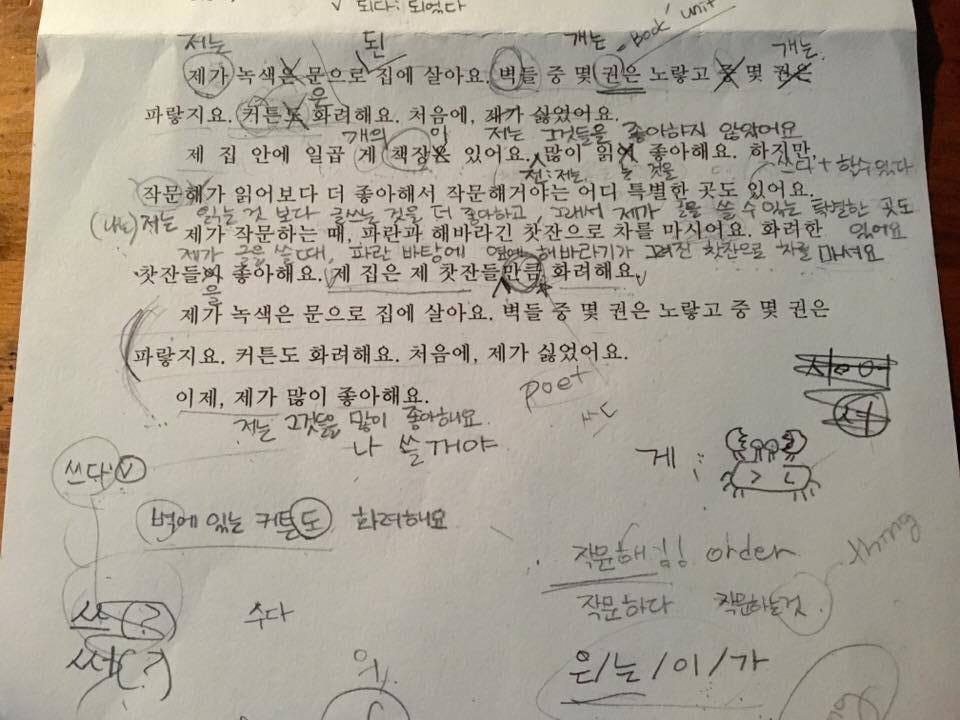 ✓ 되다: 되었다
저는 된 개는 Book unit 개는
제가 녹색은 문으로 집에 살아요. 벽들 중 몇 권은 노랗고 중 몇 권은
을
파랗지요. 커튼도 화려해요. 처음에, 제가 싫었어요.
개의 이 저는 그것들을 좋아하지 않았어요
제 집 안에 일곱 게 책장은 있어요. 많이 읽어 좋아해요. 하지만,
전: 저는 는 것을 쓰다 +
작문해가 읽어보다 더 좋아해서 작문해거야는 어디 특별한 곳도 있어요.
(나는) 저는 읽는 것 보다 글쓰는 것을 더 좋아하고, 그래서 제가 글을 쓸 수 있는 특별한 곳도
제가 작문하는 때, 파란과 해바라긴 찻잔으로 차를 마시어요. 화려한 있어요
제가 글을 쓸 때, 파란 바탕에 옆에 해바라기가 그려진 찻잔으로 차를 마셔요
찻잔들이 좋아해요. 제 집은 제 찻잔들만큼 화려해요.
을
제가 녹색은 문으로 집에 살아요. 벽들 중 몇 권은 노랗고 중 몇 권은
파랗지요. 커튼도 화려해요. 처음에, 제가 싫었어요.
이제, 제가 많이 좋아해요. poet
저는 그것들을 많이 좋아해요
나 쓸 거야
게 :
쓰다
벽에 있는 커튼도 화려해요
작문해 order thing
쓰(?) 수다 작문하다 작문하는것
써(?)
은/는/이/가